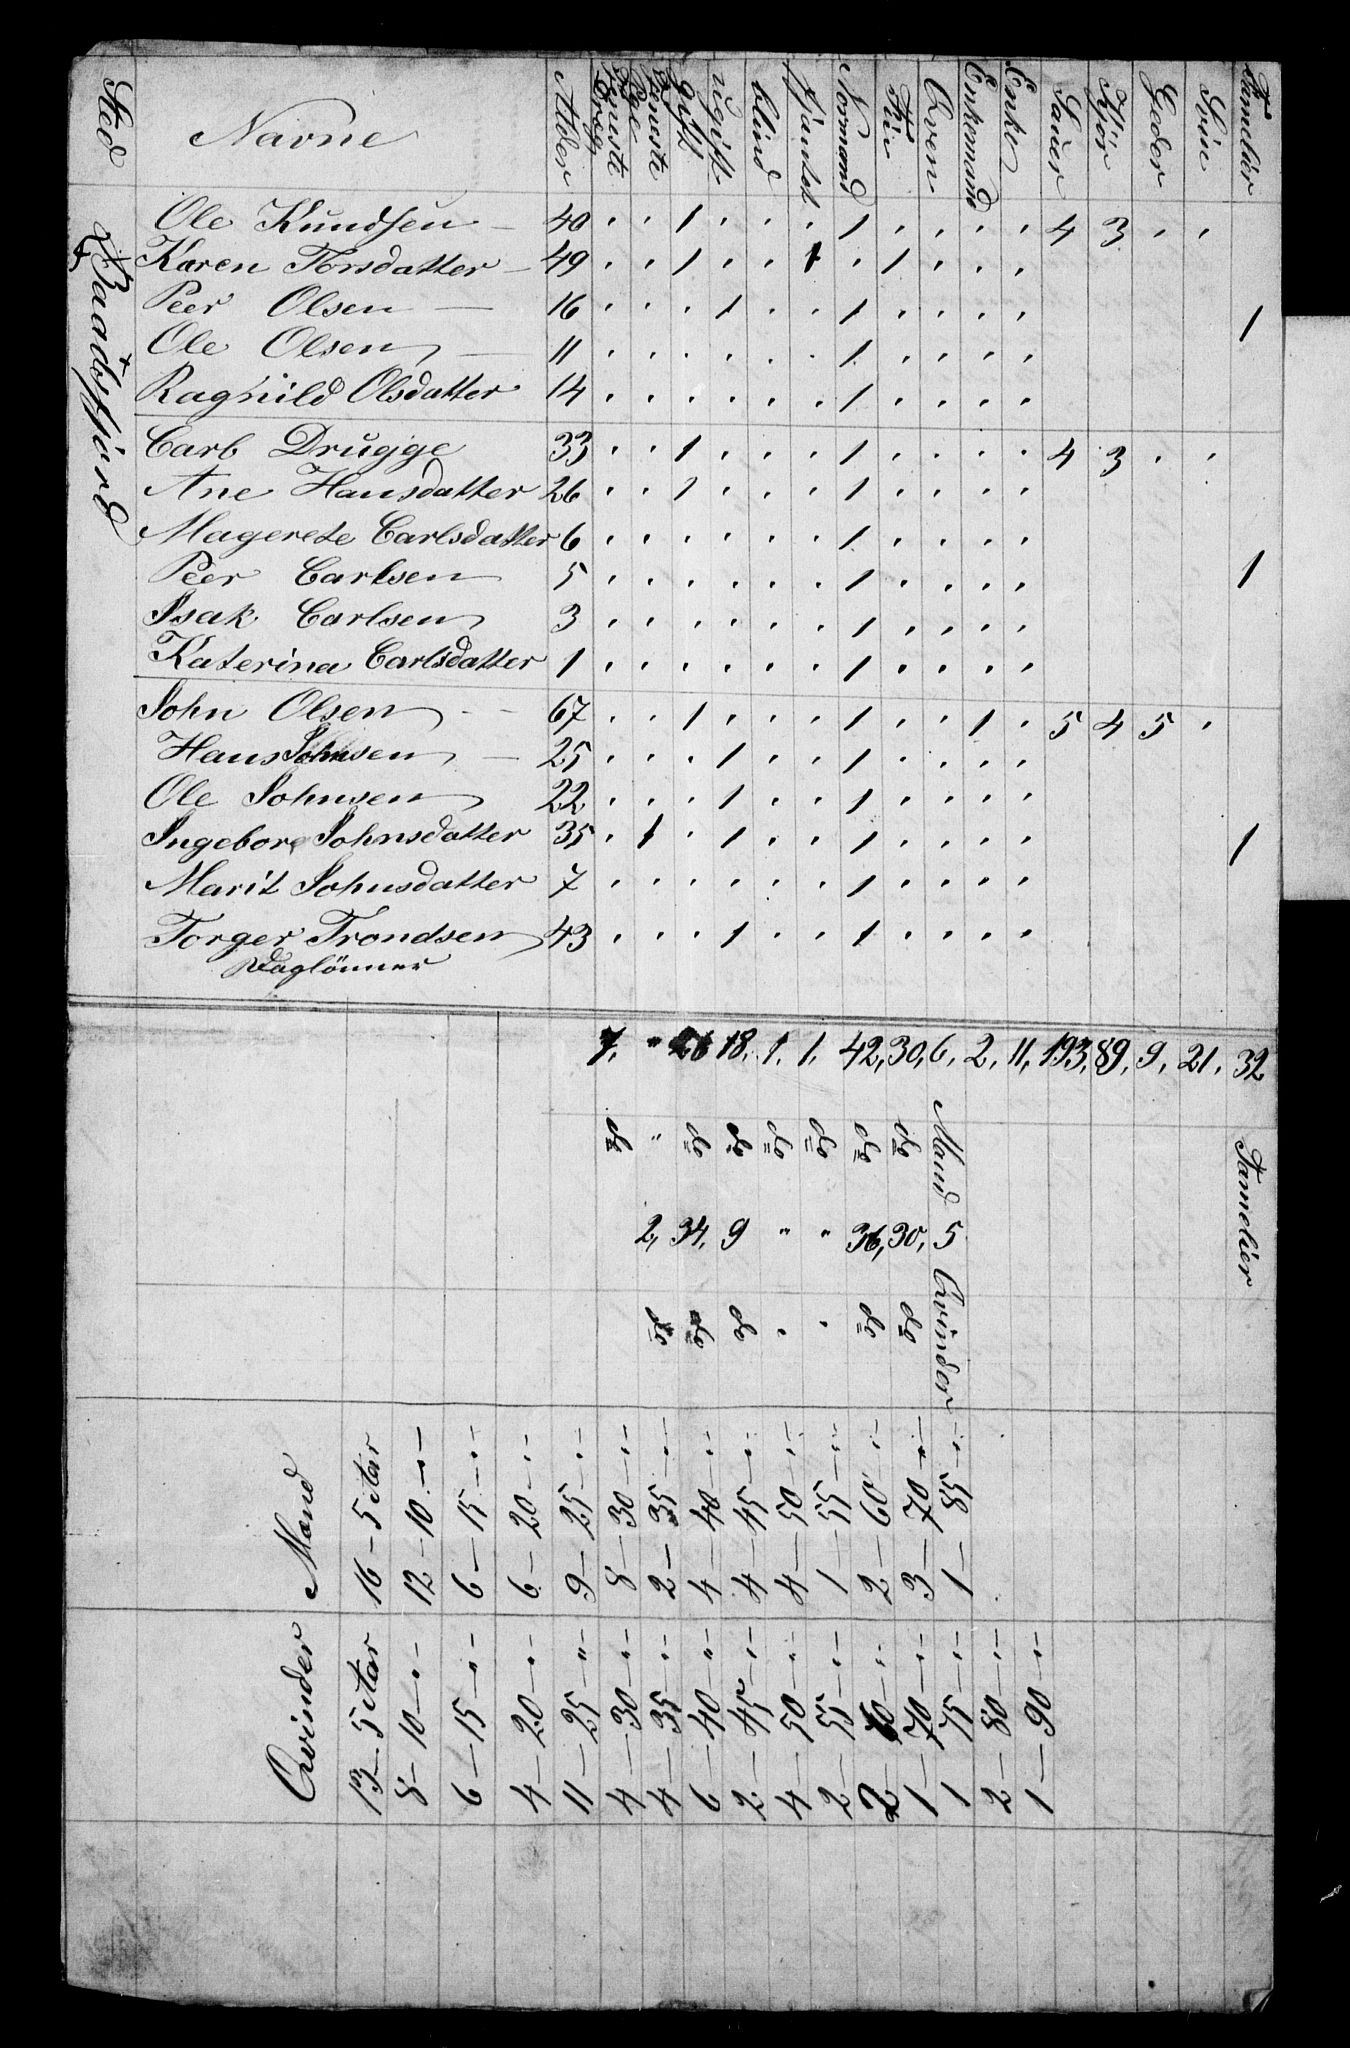 Sted Navne Alder Tjeneste Dreng Tjeneste Pige gift ugift blind Normand Fin Qven Enkemand Enke Sauer Kjør Geder Svin Famelier
Baadsfjord
Ole Knudsen — 40 . . 1 . . . 1 . . . . 4 3 . .
Karen Torsdatter — 49 . . 1 . . 1 . 1 . . .
Peer Olsen — 16 . . . 1 . . 1 . . . . 1
Ole Olsen — 11 . . . . . . 1 . . . .
Ragnild Olsdatter 14 . . . . . . 1 . . . .
Carl Drugge 33 . . 1 . . . 1 . . . . 4 3 . .
Ane Hansdatter 26 . . 1 . . . 1 . . . .
Magerete Carlsdatter 6 . . . . . . 1 . . . .
Peer Carlsen 5 . . . . . . 1 . . . . 1
Isak Carlsen 3 . . . . . . 1 . . . .
Katerina Carlsdatter 1 . . . . . . 1 . . . .
John Olsen — 67 . . 1 . . . 1 . . 1 . 5 4 5 .
Hans Johnsen — 25 . . . 1 . . 1 . . . .
Ole Johnsen 22 . . . 1 . . 1 . . . .
Ingeborg Johnsdatter 35 . 1 . 1 . . 1 . . . . 1
Marit Johnsdatter 7 . . . . . . 1 . . . .
Torger Trondsen 43 . . . 1 . . 1 . . . .
Daglönner
7, " 26 18, 1, 1, 42, 30, 6, 2, 11, 193, 89, 9, 21, 32
do " do do do do do do Mand Famelier
2, 34, 9 " " 36, 30, 5
do do do . . do do Qvinder
Mand
16 — 5 Aar
12 — 10 — " —
6 — 15 — " —
6 — 20 — " —
9 — 25 — " —
8 — 30 — " —
2 — 35 — " —
4 — 40 — " —
4 — 45 — " —
4 — 50 — " —
1 — 55 — " —
2 — 60 — " —
3 — 70 — " —
1 — 58 — " —
Qvinder
13 — 5 Aar
8 — 10 — " —
6 — 15 — " —
4 — 20 — " —
11 — 25 — " —
4 — 30 — " —
4 — 35 — " —
6 — 40 — " —
2 — 45 — " —
4 — 50 — " —
2 — 55 — " —
2 — 60 — " —
1 — 70 — " —
1 75 — " —
2 — 80 — " —
1 — 90 — " —